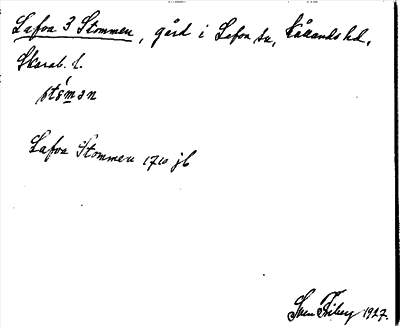 Lafva 3 Stommen, gård i Lafva sn, Kållands hd,
Skarab. l.
stómən
Lafva Stommen 1710 jb
Sven Friberg 1927.